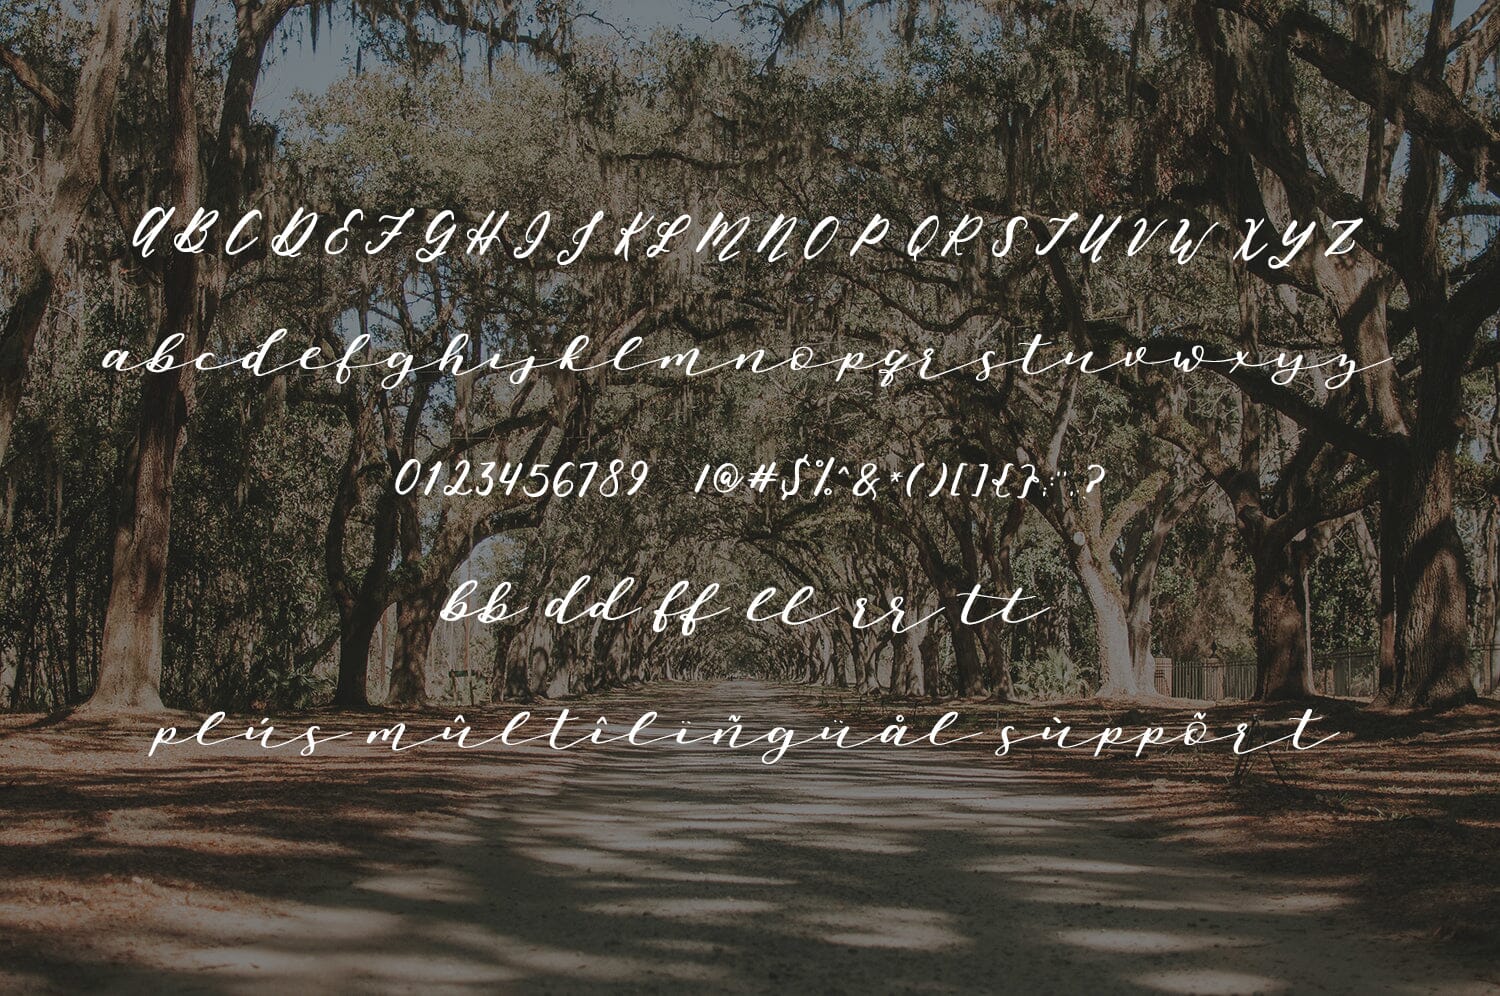 A B C D E F G H I J K L M N O P Q R S T U V W X Y Z
a b c d e f g h i j k l m n o p q r s t u v w x y z
0123456789 !@#$%^&*()[]{};:",.?
bb dd ff ll rr tt
plús mûltîlïñgüål sùppõrt